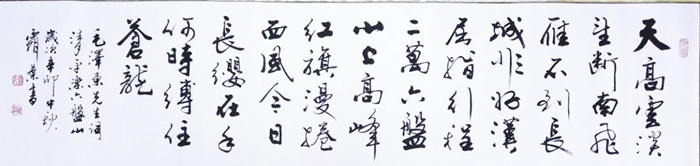 天高雲淡
望斷南飛
雁不到長
城非好漢
屈指行程
二萬六盤
山上高峰
紅旗漫捲
西風今日
長纓在手
何時縛住
蒼龍
毛澤東先生詞
清平樂六盤山
歲次辛卯中秋
霜書